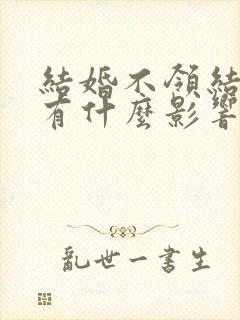 結婚不領結
有什麼影響
亂世一書生